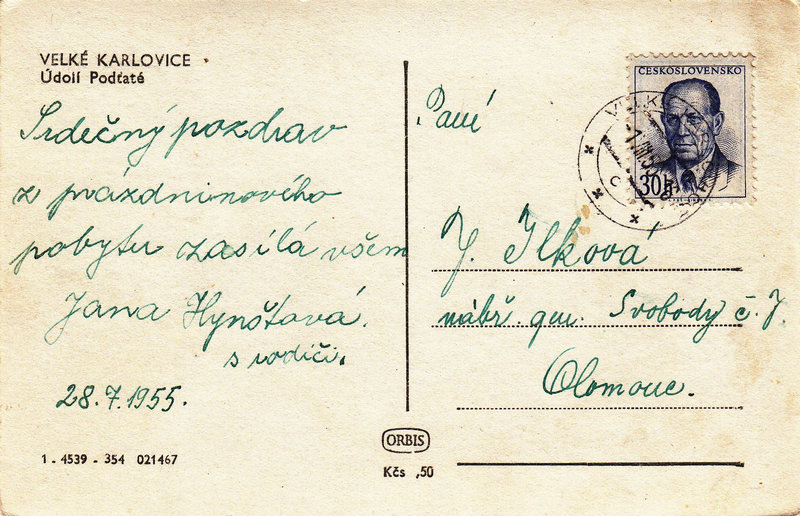 VELKÉ KARLOVICE
Údolí Podťaté
Srdečný pozdrav
z prázdninového
pobytu zasílá všem
Jana Hynšťová.
s rodiči.
28.7.1955.
1 - 4539 - 354 021467
ORBIS
Kčs ,50
ČESKOSLOVENSKO
30h
Paní
J. Ilková
nábř. gen. Svobody č. 7.
Olomouc.